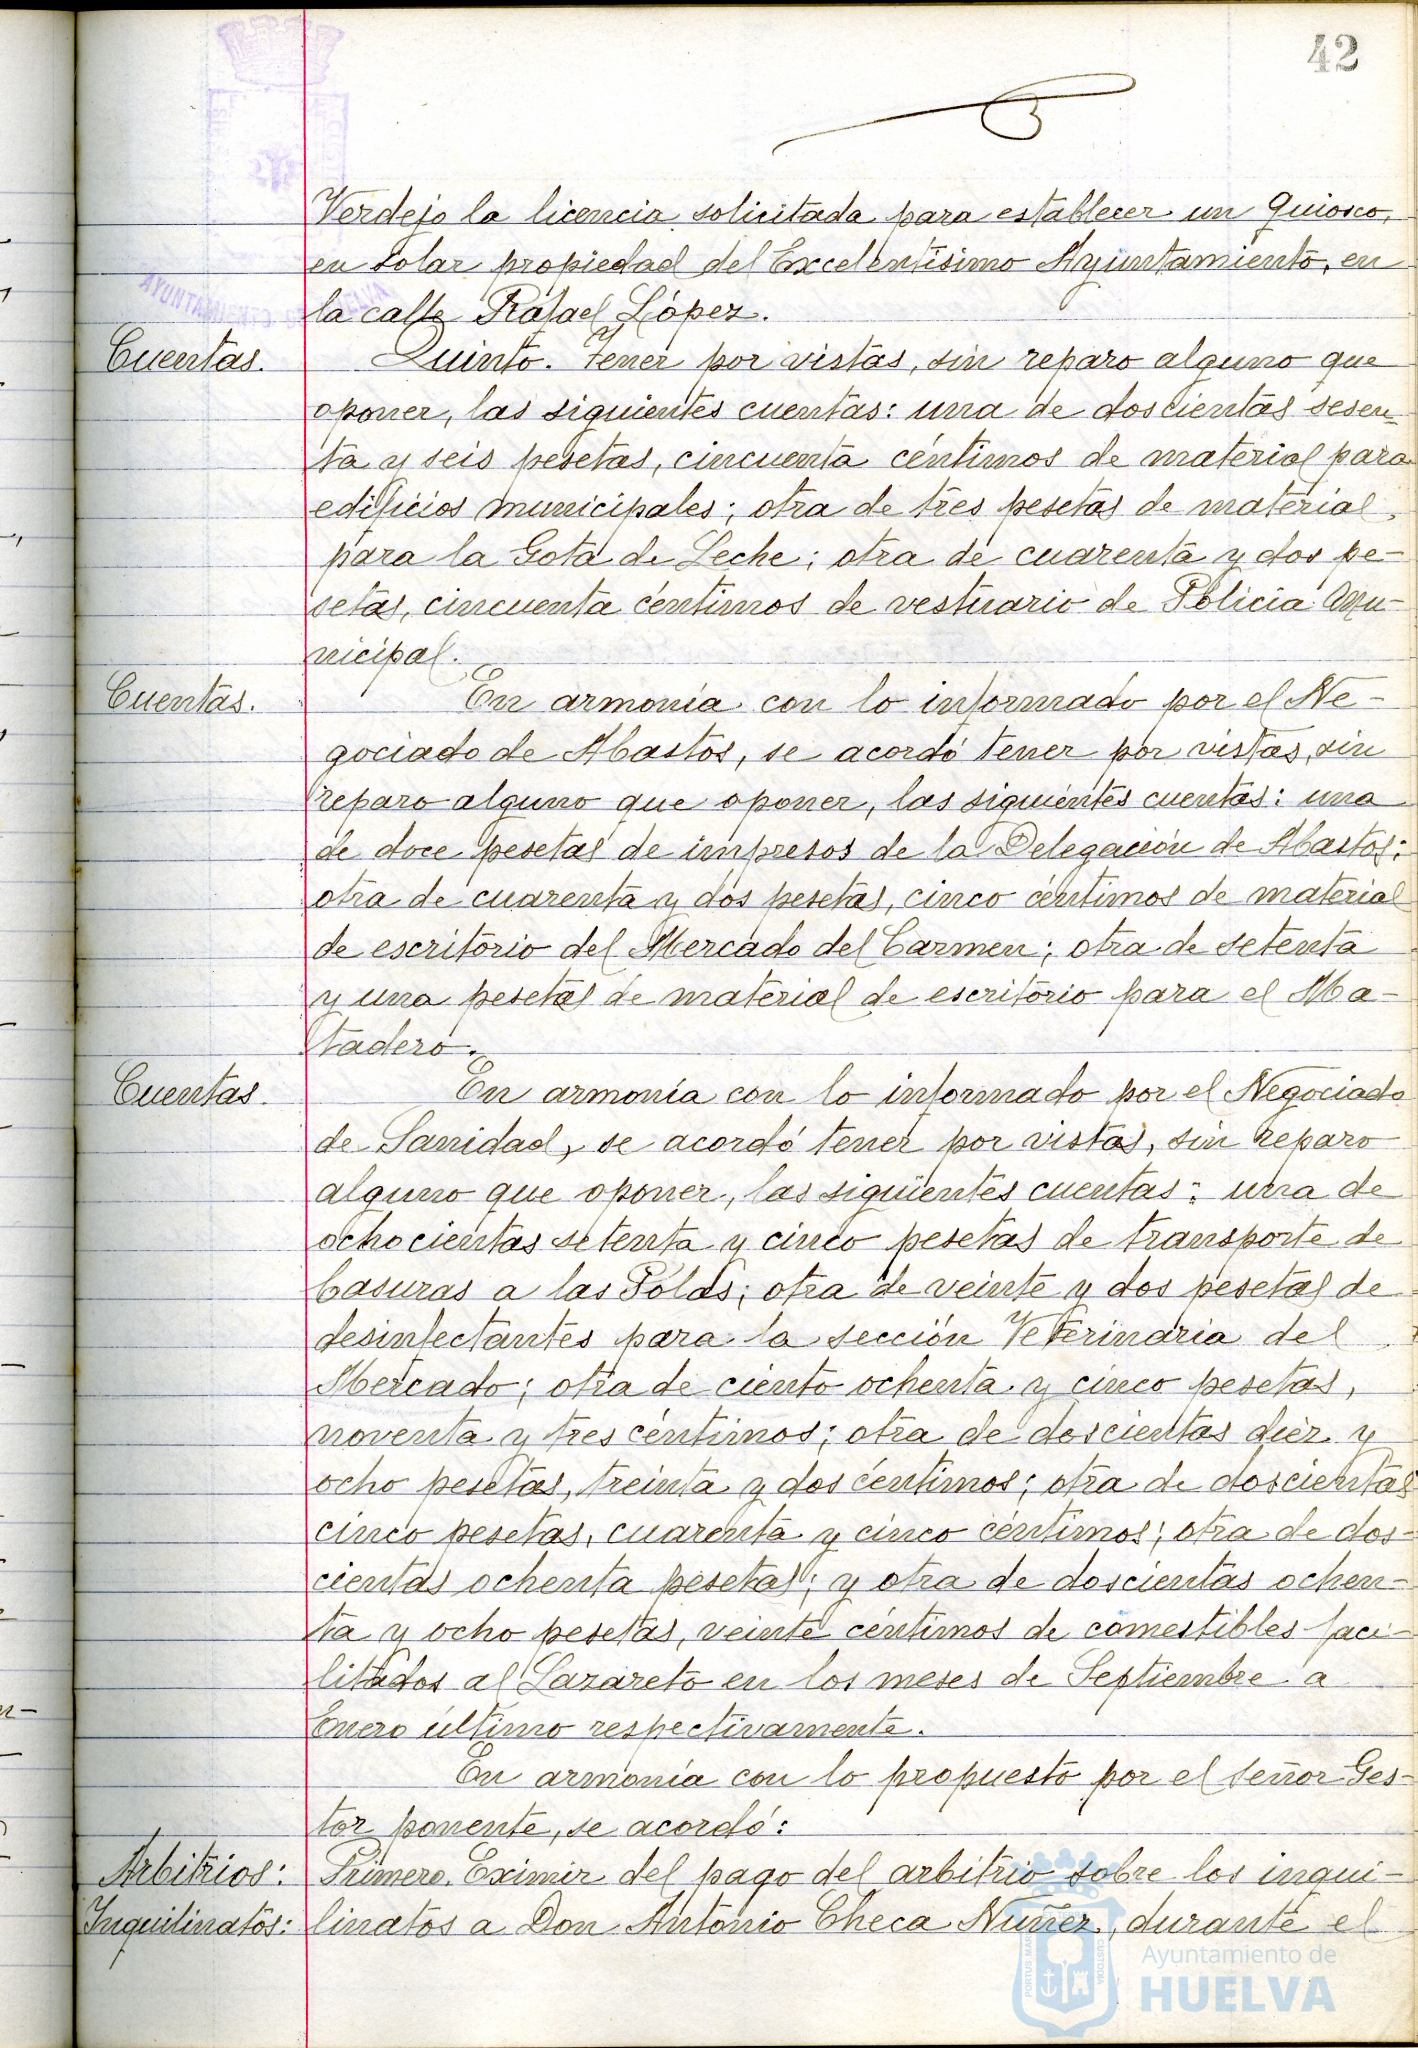 42
Verdejo la licencia solicitada para establecer un Quiosco,
en solar propiedad del Excelentísimo Ayuntamiento, en
la calle Rafael López.
AYUNTAMIENTO DE HUELVA
Cuentas.
Quinto. Tener por vistas, sin reparo alguno que
oponer, las siguientes cuentas: una de doscientas sesen-
ta y seis pesetas, cincuenta céntimos de material para
edificios municipales; otra de tres pesetas de material
para la Gota de Leche; otra de cuarenta y dos pe-
setas, cincuenta céntimos de vestuario de Policía Mu-
nicipal.
Cuentas.
En armonía con lo informado por el Ne-
gociado de Abastos, se acordó tener por vistas, sin
reparo alguno que oponer, las siguientes cuentas: una
de doce pesetas de impresos de la Delegación de Abastos;
otra de cuarenta y dos pesetas, cinco céntimos de material
de escritorio del Mercado del Carmen; otra de setenta
y una pesetas de material de escritorio para el Ma-
tadero.
Cuentas.
En armonía con lo informado por el Negociado
de Sanidad, se acordó tener por vistas, sin reparo
alguno que oponer, las siguientes cuentas: una de
ochocientas setenta y cinco pesetas de transporte de
basuras a las Polas; otra de veinte y dos pesetas de
desinfectantes para la sección Veterinaria del
Mercado; otra de ciento ochenta y cinco pesetas,
noventa y tres céntimos; otra de doscientas diez y
ocho pesetas, treinta y dos céntimos; otra de doscientas
cinco pesetas, cuarenta y cinco céntimos; otra de dos-
cientas ochenta pesetas; y otra de doscientas ochen-
ta y ocho pesetas, veinte céntimos de comestibles faci-
litados al Lazareto en los meses de Septiembre a
Enero último respectivamente.
En armonía con lo propuesto por el señor Ges-
tor ponente, se acordó:
Arbitrios:
Primero. Eximir del pago del arbitrio sobre los inqui-
Inquilinatos:
linatos a Don Antonio Checa Nuñez, durante el
PORTUS MARIS
CUSTODIA
Ayuntamiento de
HUELVA